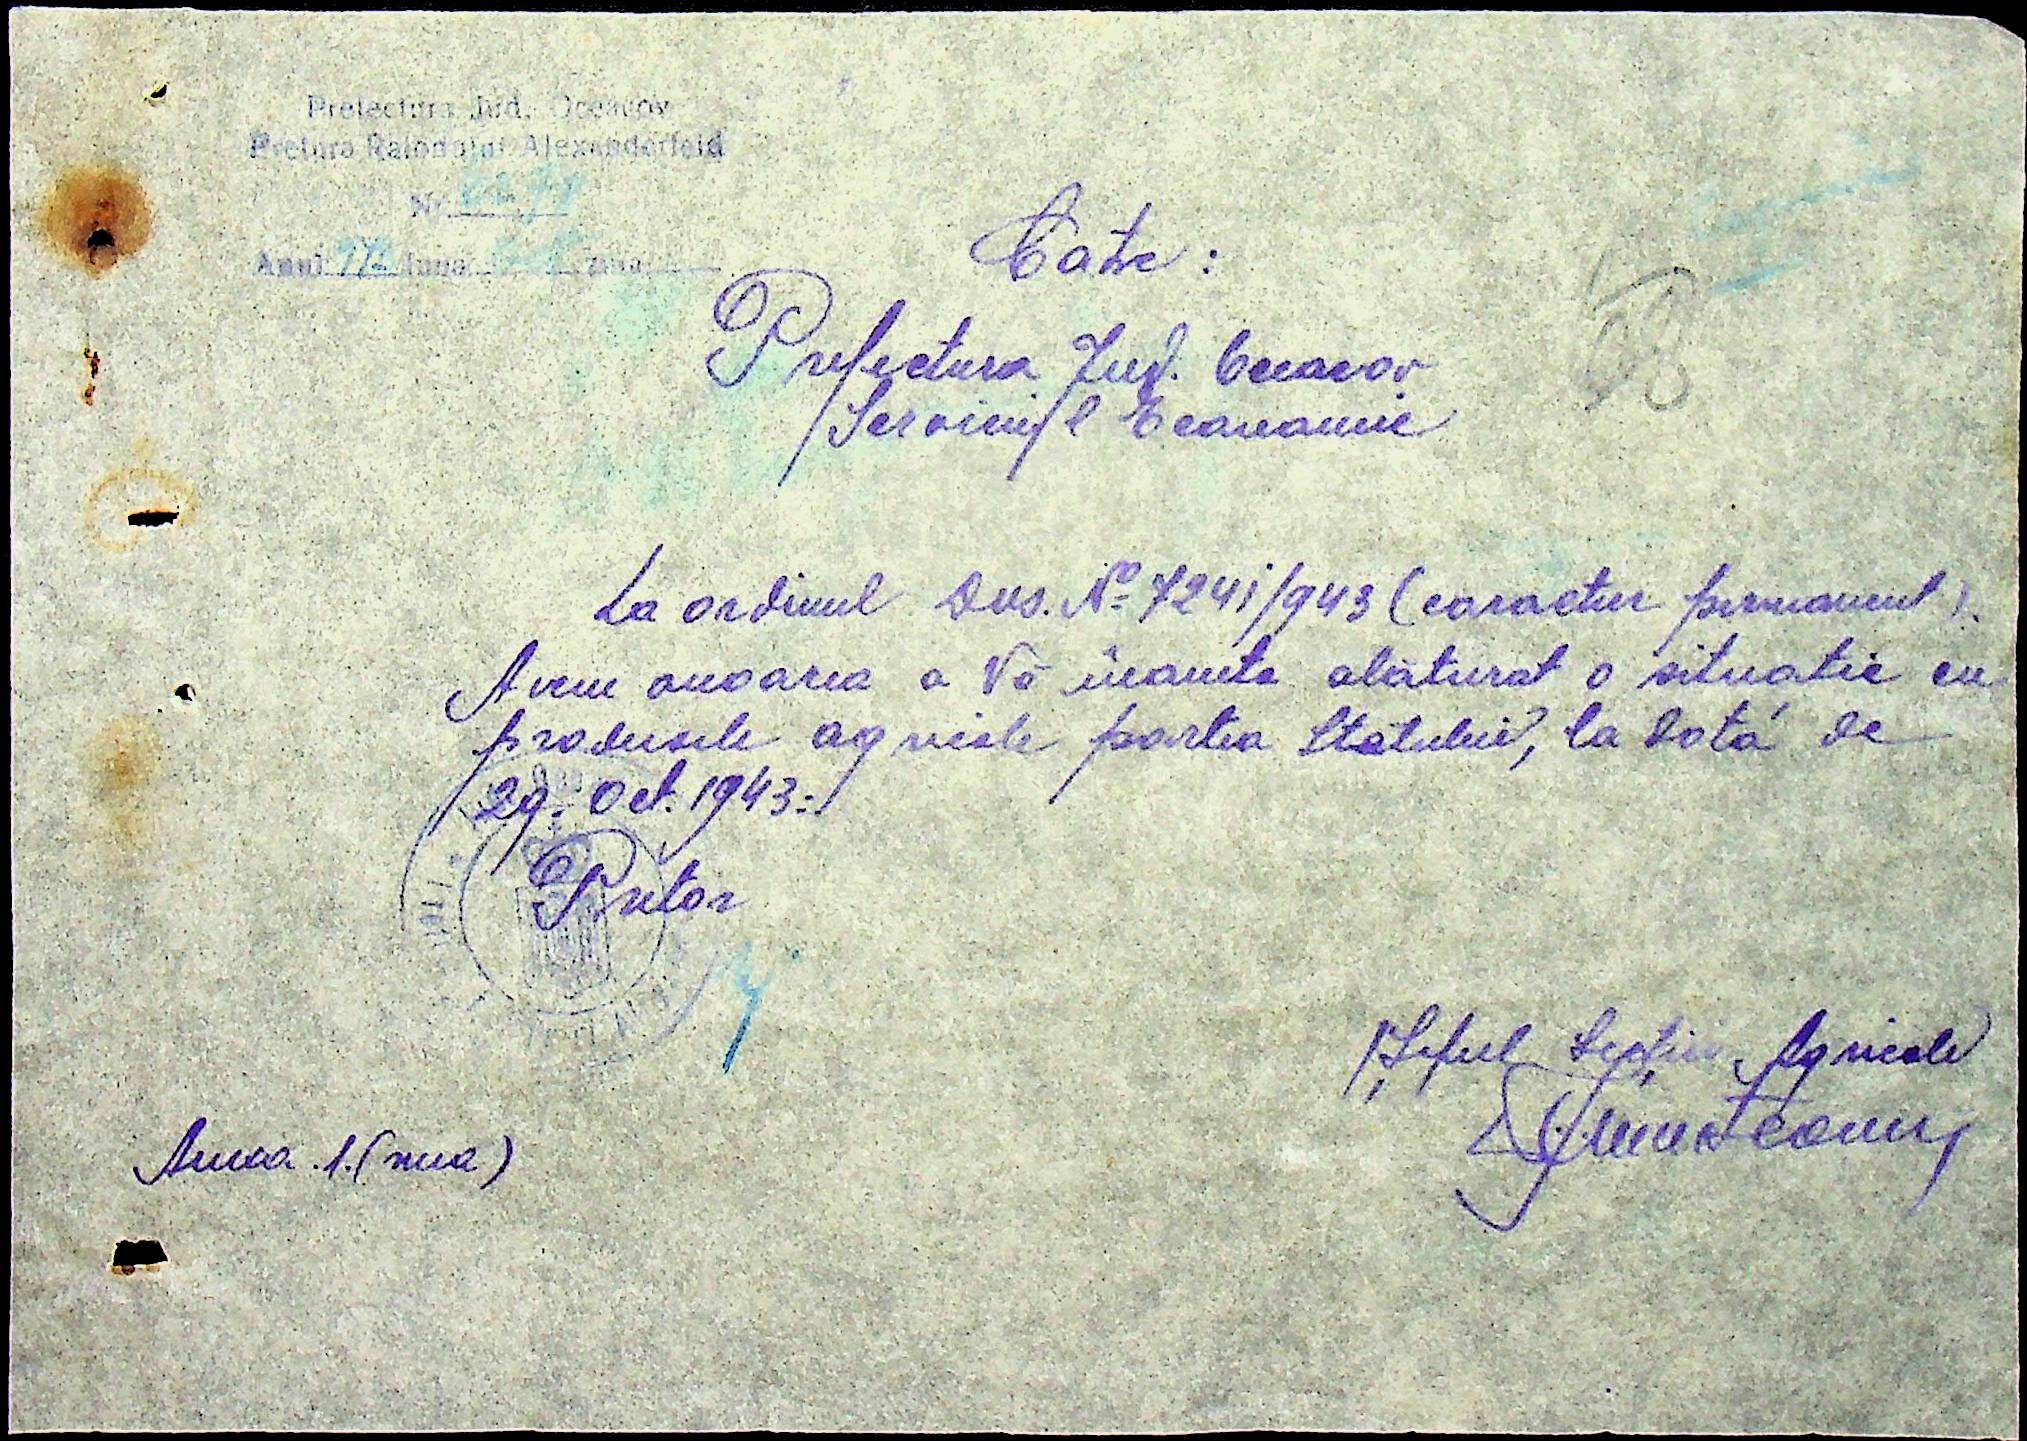 Prefectura Jud. Oceacov
Pretura Raionului Alexanderfeld
Nr.
Anul luna
Catre:
Prefectura Jud. Oceacov
Serviciul Economic
La ordinul Dvs. No 7241/943 (caracter permanent).
Avem onoarea a Vă înainta alăturat o situație cu
produsele agricole partea Statului, la data de
29. Oct. 1943.
Pretor
Șeful Secției Agricole
Anexa 1. (una)